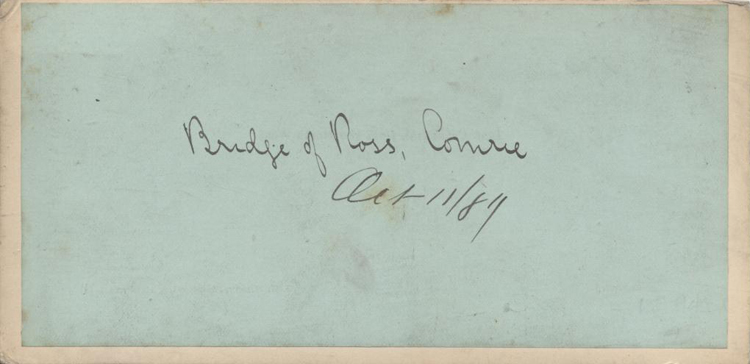 Bridge of Ross, Comrie
Oct 11/89